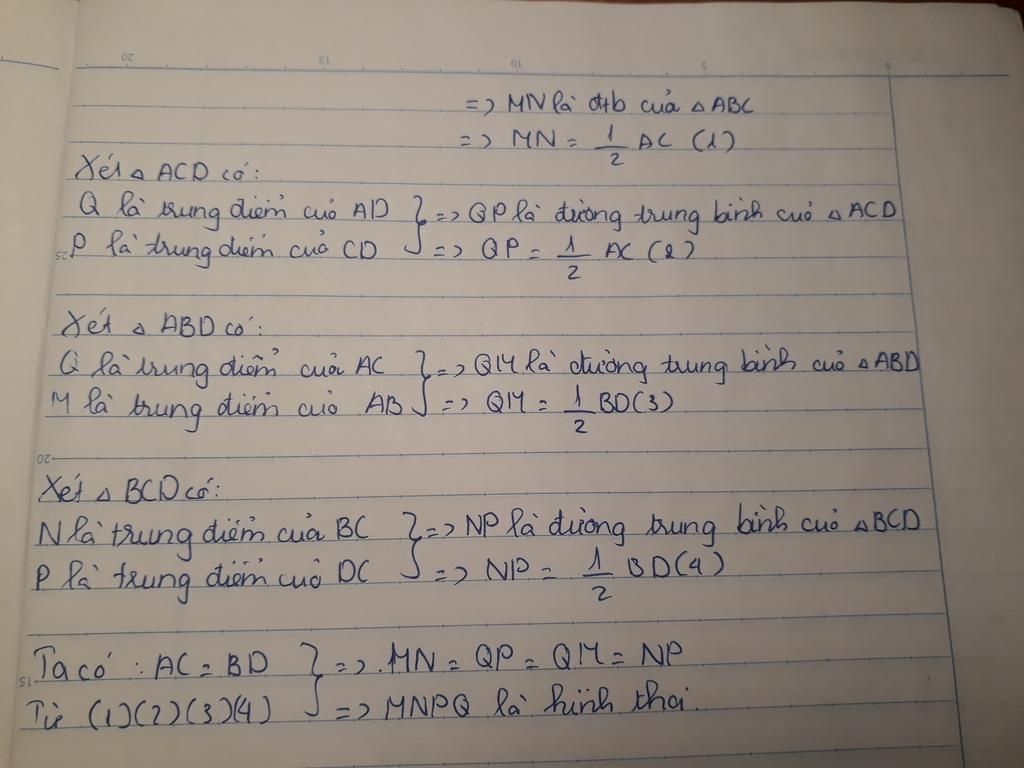 => MN là đtb của △ABC
=> MN = 1/2 AC (1)
Xét △ ACD có:
Q là trung điểm cuả AD } => QP là đường trung bình cuả △ACD
P là trung điểm cuả CD } => QP = 1/2 AC (2)
Xét △ ABD có:
Q là trung điểm cuả AC } => QM là đường trung bình cuả △ABD
M là trung điểm cuả AB } => QM = 1/2 BD(3)
Xét △ BCD có:
N là trung điểm của BC } => NP là đường trung bình cuả △BCD
P là trung điểm cuả DC } => NP = 1/2 BD(4)
Ta có : AC = BD } => MN = QP = QM = NP
Từ (1)(2)(3)(4) } => MNPQ là hình thoi.
20 15 10 5 0
25
20
15